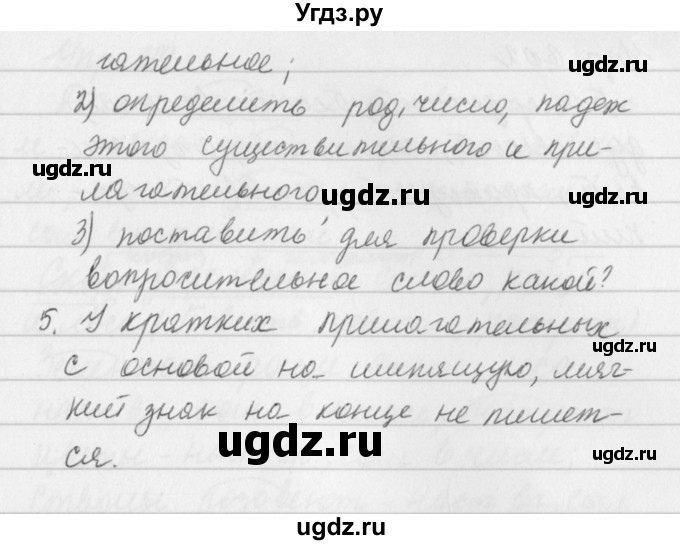 Угдз.ру
гательное;
2) определить род, число, падеж
этого существительного и при-
ugdz.ru ugdz.ru ugdz.ru
лагательного
3) поставить для проверки
вопросительное слово какой?
5. У кратких прилагательных
с основой на шипящую, мяг-
ugdz.ru ugdz.ru
кий знак на конце не пишет-
ugdz.ru
ся.
ugdz.ru ugdz.ru
ugdz.ru